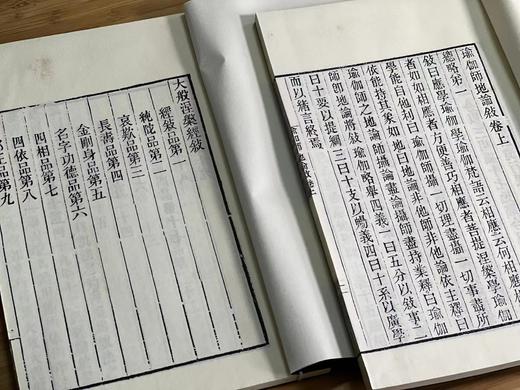 瑜伽師地論敍 卷上
總略第一
敍曰應學瑜伽學瑜伽梵語云相應云何相應
者如如相應者方便善巧相應者菩提涅槃學瑜伽
學能自他利曰瑜伽師瑜伽師攝一切理盡攝一切事盡所
依能持其業如地曰地論非他師非他論依主釋曰瑜伽
瑜伽師之地論師地論攝論盡論攝師盡持業釋曰瑜伽
瑜伽師地論將敍瑜伽略舉四義一曰五分以敍事二
曰十要以提綱三曰十支以暢義四曰十系以廣學
而以緒言敍焉
大般涅槃經敍
經敍品第一
純陀品第二
哀歎品第三
長壽品第四
金剛身品第五
名字功德品第六
四相品第七
四依品第八
邪正品第九